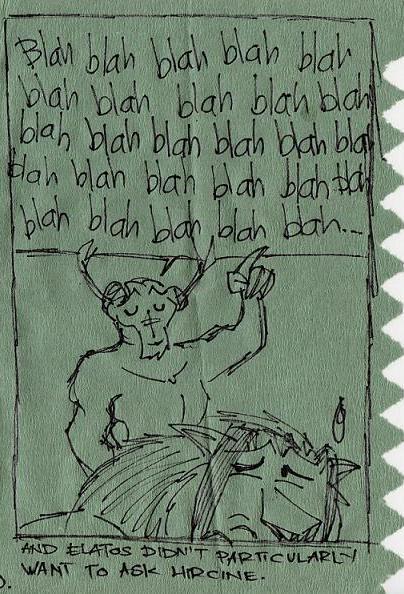 Blah blah blah blah blah
blah blah blah blah blah
blah blah blah blah blah blah
blah blah blah blah blah blah
blah blah blah blah blah...
AND ELATOS DIDN'T PARTICULARLY
WANT TO ASK HIRCINE.